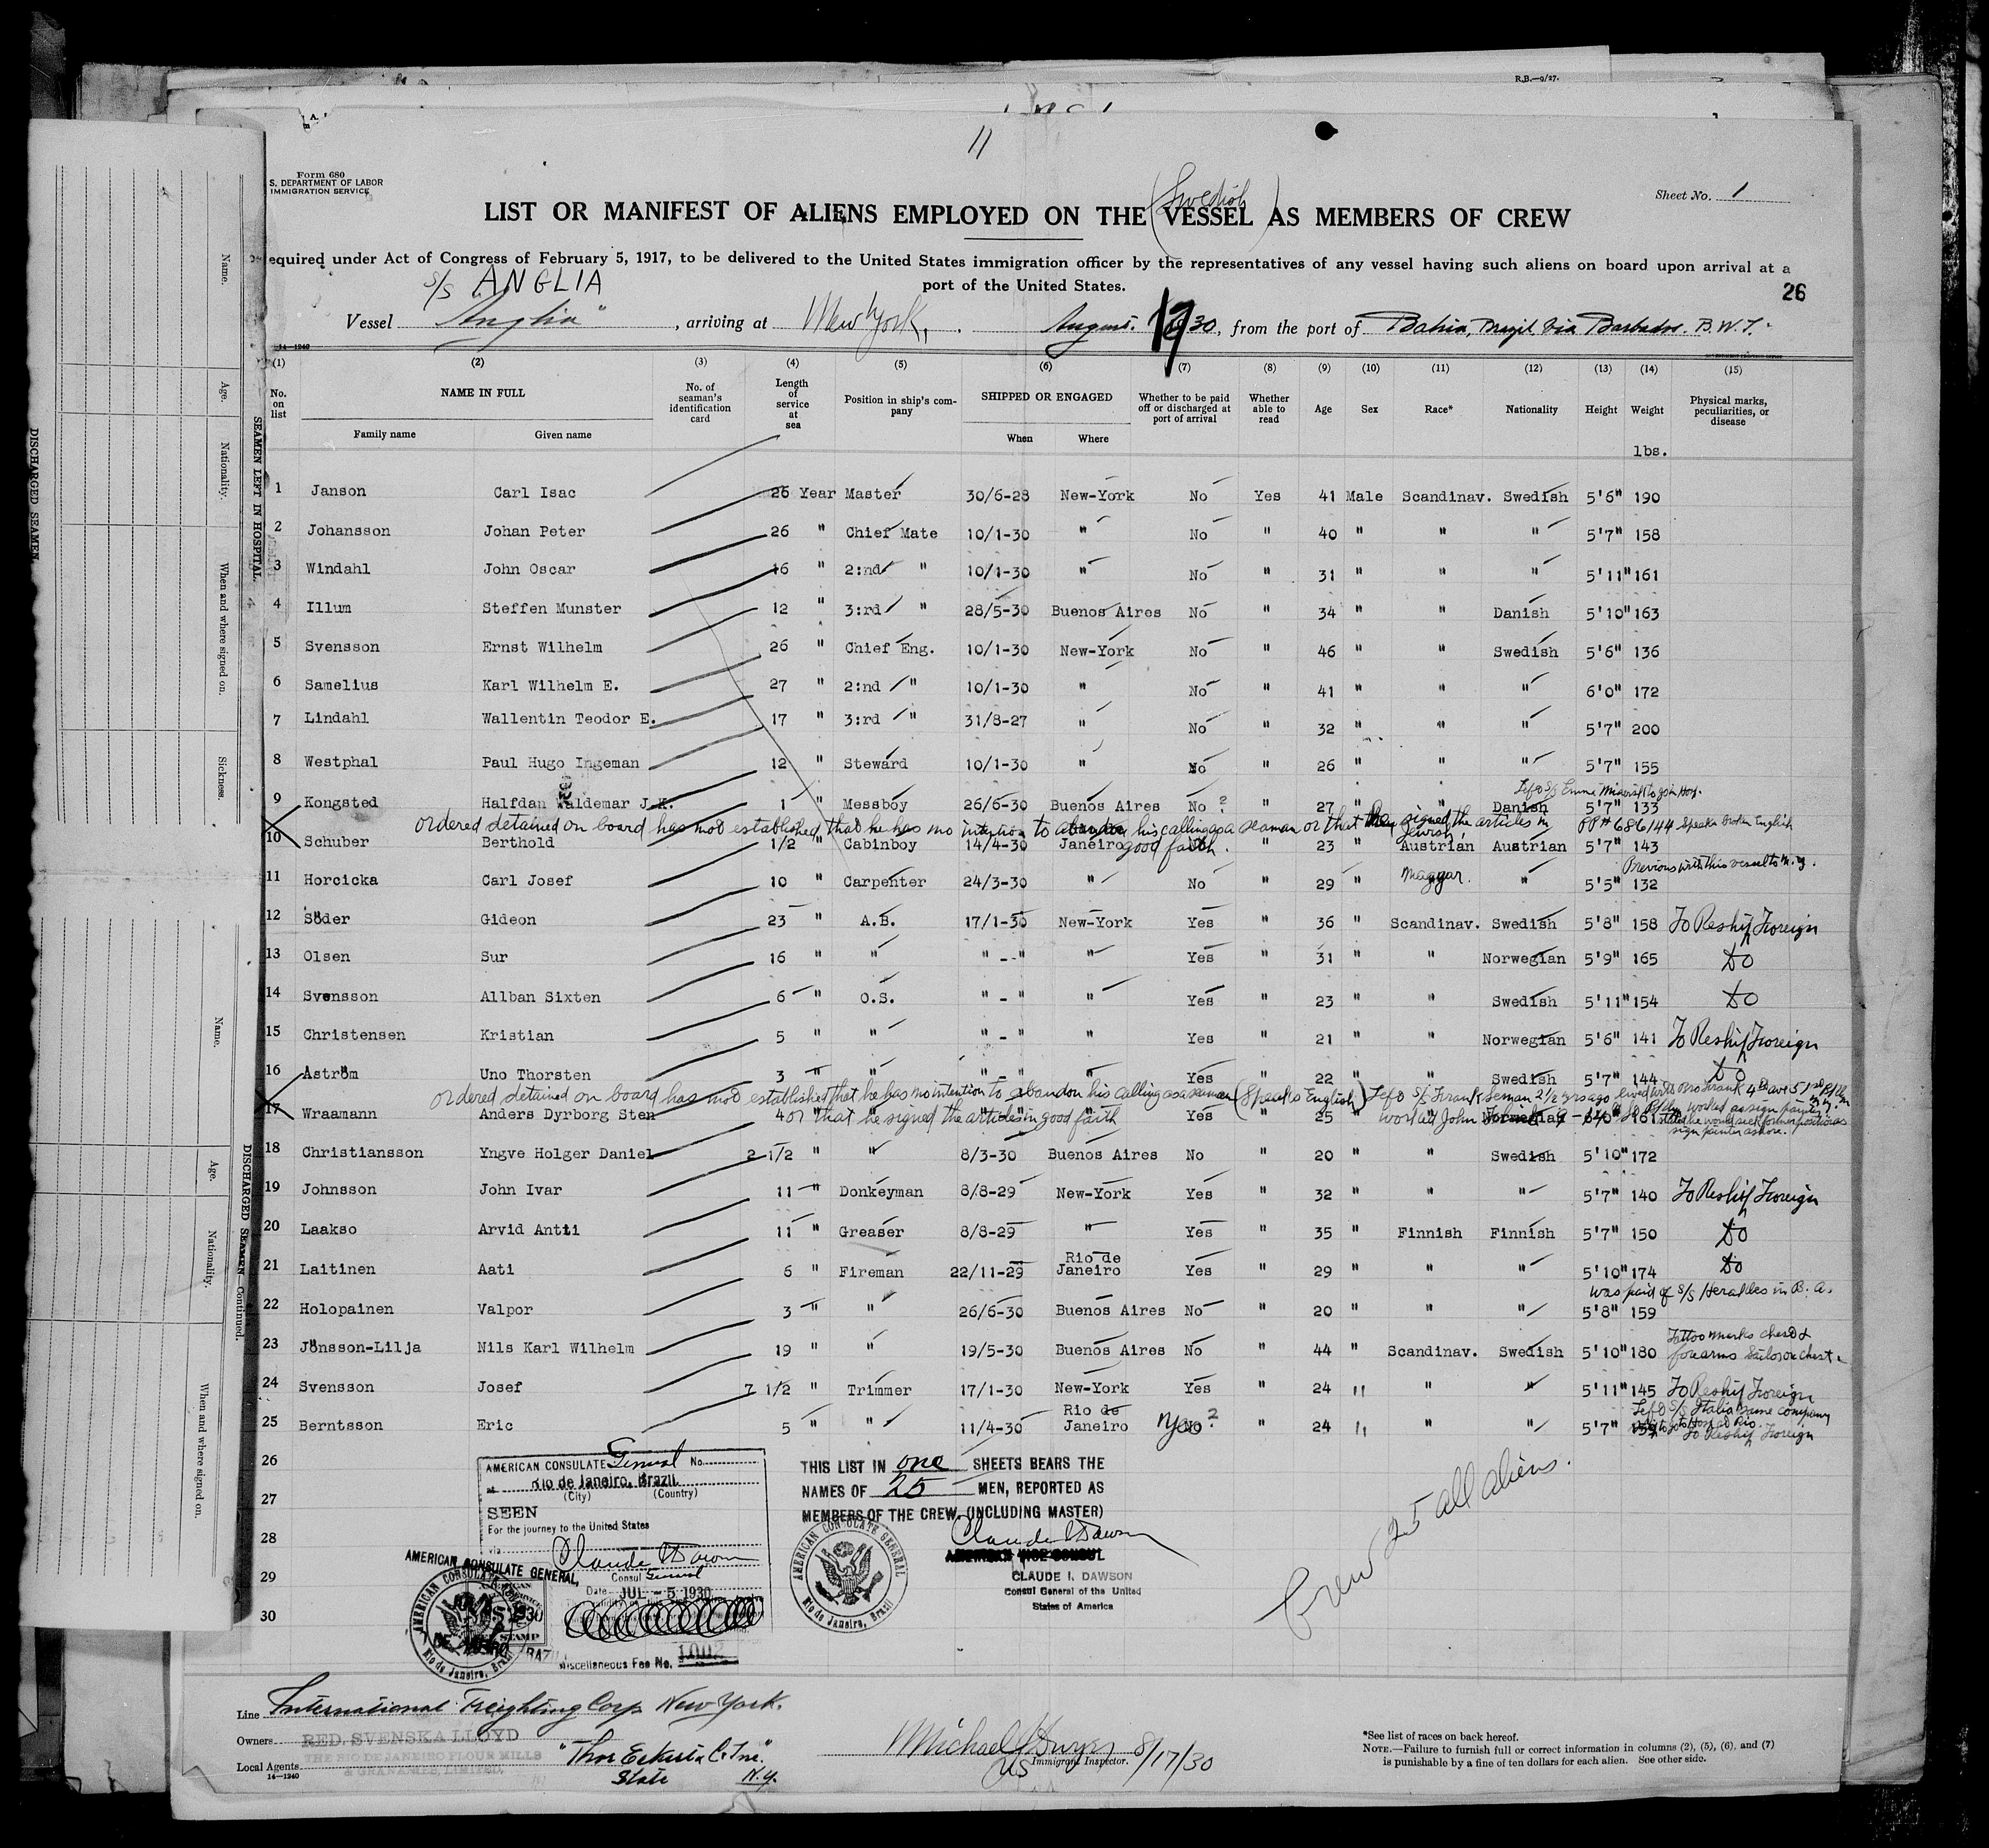 R.B.—9/27.
11
Form 680
S. DEPARTMENT OF LABOR
IMMIGRATION SERVICE
Sheet No. 1
(Swedish)
LIST OR MANIFEST OF ALIENS EMPLOYED ON THE VESSEL AS MEMBERS OF CREW
equired under Act of Congress of February 5, 1917, to be delivered to the United States immigration officer by the representatives of any vessel having such aliens on board upon arrival at a
port of the United States.
26
S/S ANGLIA
Vessel "Anglia", arriving at New York, August 17 1930, from the port of Bahia, Brazil via Barbados. B.W.I.
14—1240
(1) (2) (3) (4) (5) (6) (7) (8) (9) (10) (11) (12) (13) (14) (15)
No. on list NAME IN FULL No. of seaman's identification card Length of service at sea Position in ship's company SHIPPED OR ENGAGED Whether to be paid off or discharged at port of arrival Whether able to read Age Sex Race* Nationality Height Weight Physical marks, peculiarities, or disease
Family name Given name When Where
lbs.
1 Janson Carl Isac 26 Year Master 30/6-28 New-York No Yes 41 Male Scandinav. Swedish 5'6" 190
2 Johansson Johan Peter 26 " Chief Mate 10/1-30 " No " 40 " " " 5'7" 158
3 Windahl John Oscar 16 " 2:nd " 10/1-30 " No " 31 " " " 5'11" 161
4 Illum Steffen Munster 12 " 3:rd " 28/5-30 Buenos Aires No " 34 " " Danish 5'10" 163
5 Svensson Ernst Wilhelm 26 " Chief Eng. 10/1-30 New-York No " 46 " " Swedish 5'6" 136
6 Samelius Karl Wilhelm E. 27 " 2:nd " 10/1-30 " No " 41 " " " 6'0" 172
7 Lindahl Wallentin Teodor E. 17 " 3:rd " 31/8-27 " No " 32 " " " 5'7" 200
8 Westphal Paul Hugo Ingeman 12 " Steward 10/1-30 " No " 26 " " " 5'7" 155
9 Kongsted Halfdan Valdemar J.K. 1 " Messboy 26/6-30 Buenos Aires No ? " 27 " " Danish 5'7" 133
ordered detained on board has not established that he has no intention to abandon his calling as a seaman or that he signed the articles in good faith. PP# 686144 Speaks Broken English
10 Schuber Berthold 1/2 " Cabinboy 14/4-30 Janeiro " 23 " Jewish Austrian Austrian 5'7" 143
Previous with this vessel to N.Y.
11 Horcicka Carl Josef 10 " Carpenter 24/3-30 " No " 29 " Magyar. " 5'5" 132
12 Söder Gideon 23 " A.B. 17/1-30 New-York Yes " 36 " Scandinav. Swedish 5'8" 158 To Reship Foreign
13 Olsen Sur 16 " " " - " " Yes " 31 " " Norwegian 5'9" 165 Do
14 Svensson Allban Sixten 6 " O.S. " - " " Yes " 23 " " Swedish 5'11" 154 Do
15 Christensen Kristian 5 " " " - " " Yes " 21 " " Norwegian 5'6" 141 To Reship Foreign
16 Aström Uno Thorsten 3 " " " - " " Yes " 22 " " Swedish 5'7" 144 Do
ordered detained on board has not established that he has no intention to abandon his calling as a seaman (Speaks English)
or that he signed the articles in good faith
17 Wraamann Anders Dyrborg Sten 4 " " " " Yes " 25 " " Norwegian 6'0" 161
18 Christiansson Yngve Holger Daniel 2 1/2 " " 8/3-30 Buenos Aires No " 20 " " Swedish 5'10" 172
19 Johnsson John Ivar 11 " Donkeyman 8/8-29 New-York Yes " 32 " " " 5'7" 140 To Reship Foreign
20 Laakso Arvid Antti 11 " Greaser 8/8-29 " Yes " 35 " Finnish Finnish 5'7" 150 Do
21 Laitinen Aati 6 " Fireman 22/11-29 Rio de Janeiro Yes " 29 " " " 5'10" 174 Do
was paid of S/S Herakles in B.A.
22 Holopainen Valpor 3 " " 26/6-30 Buenos Aires No " 20 " " " 5'8" 159
23 Jönsson-Lilja Nils Karl Wilhelm 19 " " 19/5-30 Buenos Aires No " 44 " Scandinav. Swedish 5'10" 180 Tattoo marks chest & forearms Sailor on chest
24 Svensson Josef 7 1/2 " Trimmer 17/1-30 New-York Yes " 24 " " " 5'11" 145 To Reship Foreign
25 Berntsson Eric 5 " " 11/4-30 Rio de Janeiro Yes ? " 24 " " " 5'7" To Reship Foreign
26
27
28
29
30
AMERICAN CONSULATE General No.
at Rio de Janeiro, Brazil.
(City) (Country)
SEEN
For the journey to the United States
via
Claude I Dawson
Consul General
Date JUL - 5 1930
Miscellaneous Fee No. 1002
AMERICAN CONSULATE GENERAL,
AMERICAN CONSULATE GENERAL Rio de Janeiro, Brazil
THIS LIST IN one SHEETS BEARS THE
NAMES OF 25 MEN, REPORTED AS
MEMBERS OF THE CREW. (INCLUDING MASTER)
Claude I Dawson
AMERICAN VICE CONSUL
CLAUDE I. DAWSON
Consul General of the United
States of America
AMERICAN CONSULATE GENERAL Rio de Janeiro, Brazil
Crew 25 all aliens.
Line International Freighting Corp New York.
Owners RED. SVENSKA LLOYD
THE RIO DE JANEIRO FLOUR MILLS
& GRANARIES LIMITED.
Local Agents
State N.Y.
14—1240
Michael J Dwyer 8/17/30
US Immigrant Inspector.
*See list of races on back hereof.
NOTE.—Failure to furnish full or correct information in columns (2), (5), (6), and (7)
is punishable by a fine of ten dollars for each alien. See other side.
DISCHARGED SEAMEN.
SEAMEN LEFT IN HOSPITAL
Name. Age. Nationality. When and where signed on. Sickness.
DISCHARGED SEAMEN—Continued.
Name. Age. Nationality. When and where signed on.